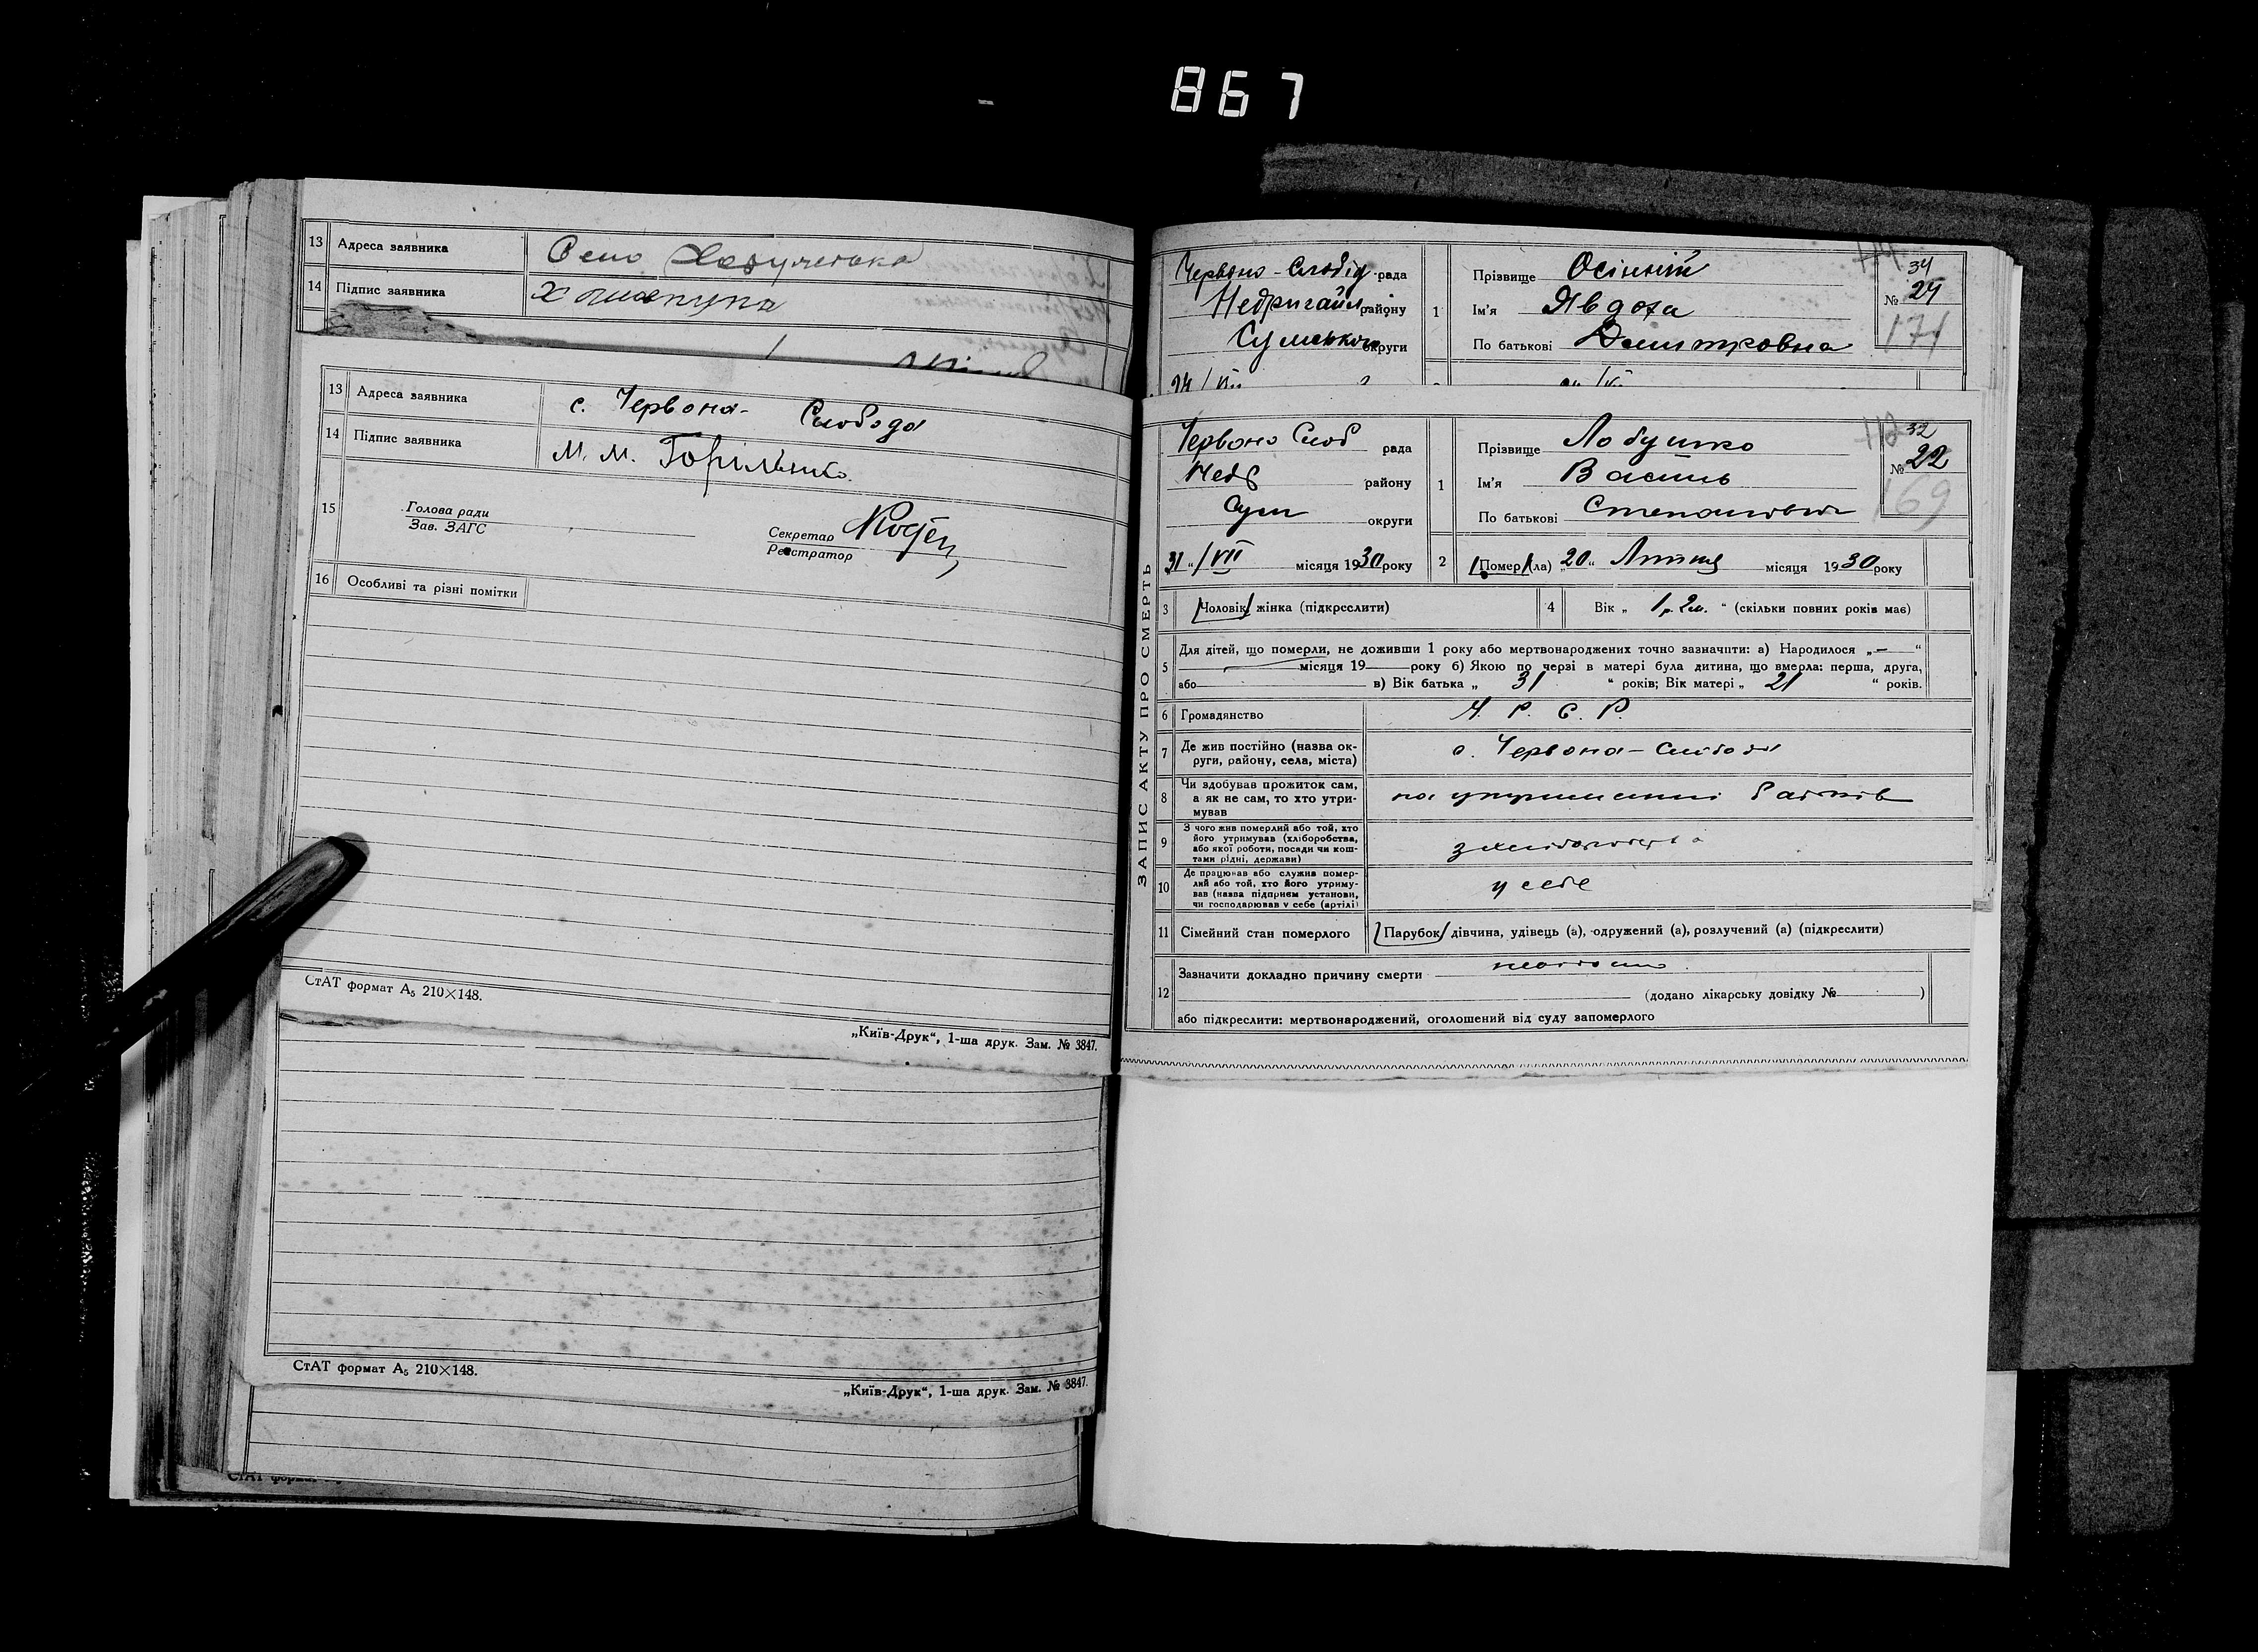 867
13 Адреса заявника Село
14 Підпис заявника
13 Адреса заявника с. Червона- Слобода
14 Підпис заявника М. М. Горільнико.
15 Голова ради
Зав. ЗАГС
Секретар
Реєстратор
16 Особливі та різні помітки
СтАТ формат А₅ 210×148.
„Київ-Друк“, 1-ша друк. Зам. № 3847.
СтАТ формат А₅ 210×148.
„Київ-Друк“, 1-ша друк. Зам. № 3847.
Червоно-Слобід рада
Недригайл району
Сумського округи
1 Прізвище Осінній
Ім'я Явдоха
По батькові Дмитровна
34
№ 24
171
ЗАПИС АКТУ ПРО СМЕРТЬ
Червоно Слоб рада
Недр району
Сум округи
31 „/VII місяця 1930 року
1 Прізвище Лобушко
Ім'я Василь
По батькові Степанович
112 32
№ 22
169
2 Помер (ла) „20“ Липня місяця 1930 року
3 Чоловік, жінка (підкреслити)
4 Вік „ 1 р. 2 м. “ (скільки повних років має)
5 Для дітей, що померли, не доживши 1 року або мертвонароджених точно зазначити: а) Народилося „—“
місяця 19 року б) Якою по черзі в матері була дитина, що вмерла: перша, друга,
або в) Вік батька „ 31 “ років; Вік матері „ 21 “ років.
6 Громадянство У. Р. С. Р.
7 Де жив постійно (назва ок-
руги, району, села, міста) с. Червона-Слобода
8 Чи вдобував прожиток сам,
а як не сам, то хто утри-
мував на утриманні батьків
9 З чого жив померлий або той, хто
його утримував (хліборобства,
або якої роботи, посади чи кош-
тами рідні, держави)
10 Де працював або служив помер-
лий або той, хто його утриму-
вав (назва підприєм установи,
чи господарював у себе (артілі) у себе
11 Сімейний стан померлого Парубок, дівчина, удівець (а), одружений (а), розлучений (а) (підкреслити)
12 Зазначити докладно причину смерти
(додано лікарську довідку № )
або підкреслити: мертвонароджений, оголошений від суду запомерлого